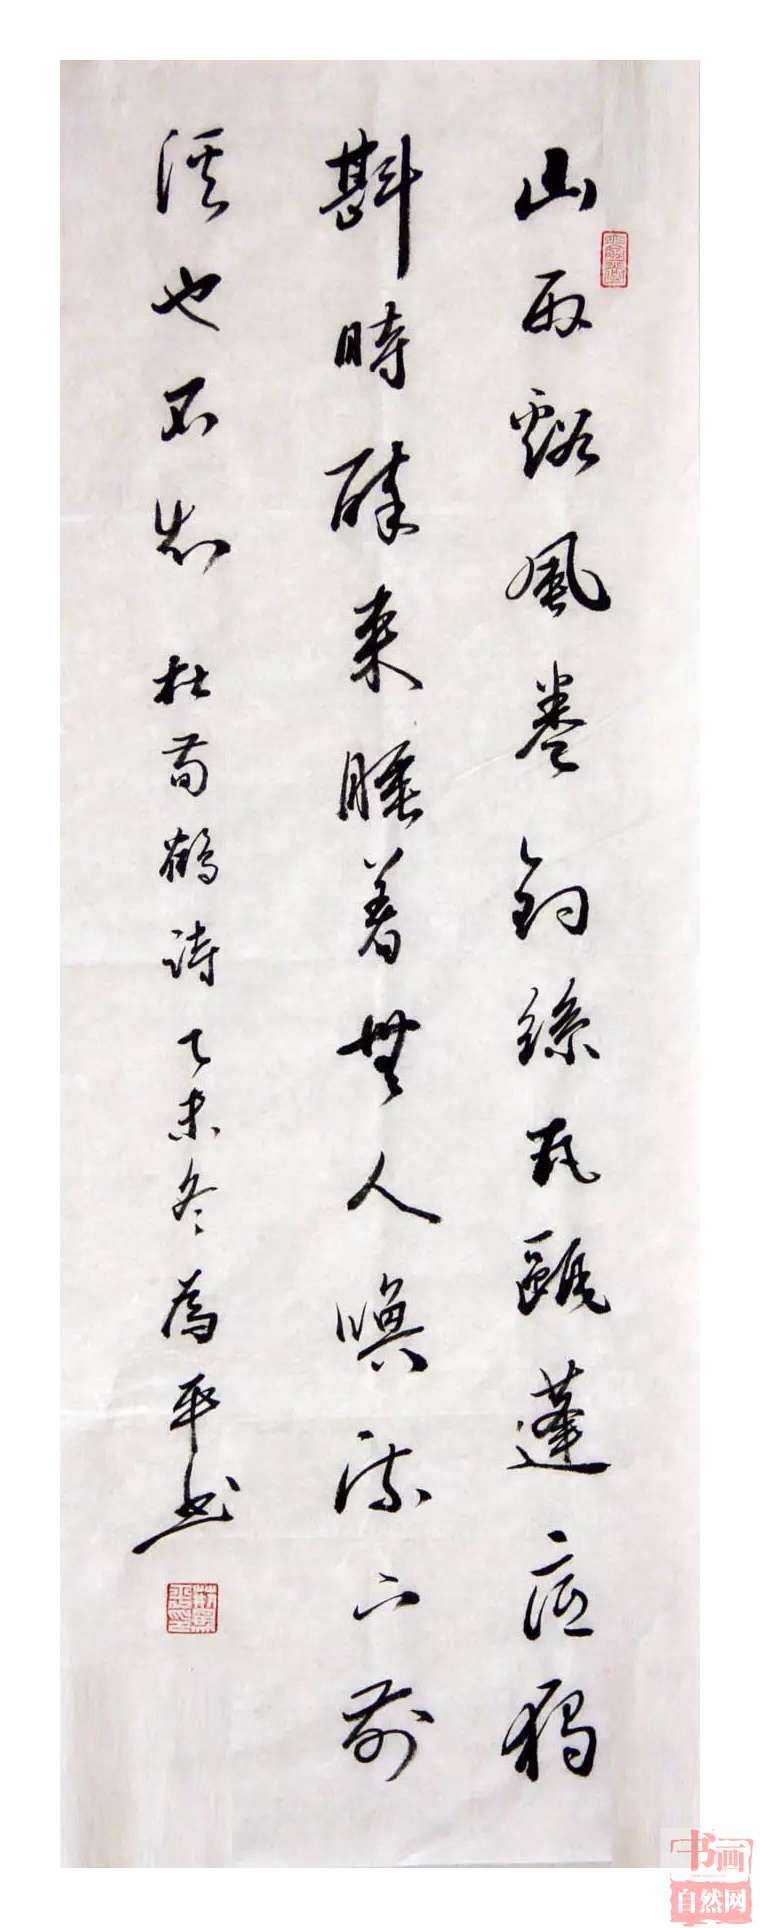 山雨谿風卷釣絲瓦甌蓬底獨
斟時醉來睡着無人喚流下前
溪也不知 杜荀鶴詩 乙未冬為平书
书画
自然网